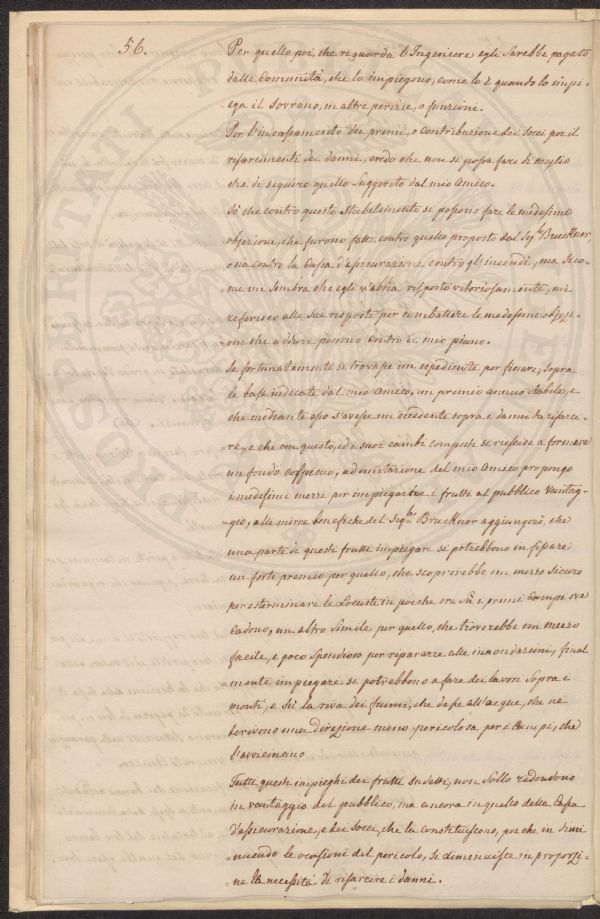 56.
Per quello poi, che riguarda l'Ingeniere egli sarebbe pagato
dalle Comunità, che lo impiegono, come lo è quando lo impi-
ega il Sovrano, in altre perizie, o funzioni.
Per l'incassamento dei premi, o Contribuzione dei Socci per il
risarcimenti dei danni, credo che non si possa fare di meglio
che di seguire quello suggerito dal mio Amico.
Sò che contro questo Stabelimento si possono fare le medesime
objezione, che furono fatte contro quello proposto dal Sigr Bruckner,
o sia contro la Cassa d'assicurazione contro gl'incendi, ma sico-
me mi sembra che egli v'abbia risposto vitoriosamente, mi
referisco alle sue resposte per combattere le medesime objezi-
oni che addure ponno contro il mio piano.
Se fortunatamente si trovasse un espediente per fissare, sopra
le base indicate dal mio Amico, un premio annuo stabile, e
che mediante esso s'avesse un eccedente sopra i danni da risarci-
re, e che con questo, ed i suoi cambi composti si riescisse a formare
un fondo cospicuo, ad imitazione del mio Amico propongo
i medesimi mezzi per impiegare i frutti al pubblico vantag-
gio, alle mire benefiche del Sigre Bruckner aggiungerò, che
una parte di questi frutti impiegare si potrebbono in fissare
un forte premio per quello, che scoprirebbe un mezzo sicuro
per esterminare le Locuste in poiche ore sù i primi Campi ove
cadono, un altro simile per quello, che troverebbe un mezzo
facile, e poco spendioso per riparare alle innondazioni, final
mente impiegare si potrebbono a fare dei lavori sopra i
monti, e sù la riva dei fiumi, che dasse all'acque, che ne
una direzione meno pericolosa per i Campi, che
l'avvicinano
Tutti questi impieghi dei frutti sudetti, non sollo redondono
in vantaggio del pubblico, ma ancora in quello della Cassa
d'assicurazione, e dei Socci, che la constituiscono, poi che in dimi
nuendo le ocasioni del pericolo, si diminuisce in proporzi-
ne la necessità di risarcire i danni.
PROSPERITATI PUBLICAE